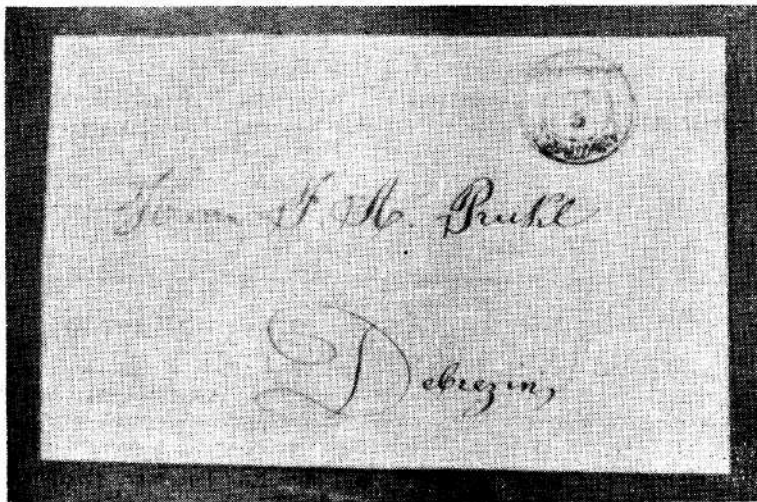 5
Herrn F. A. Pruhl
Debrezin,